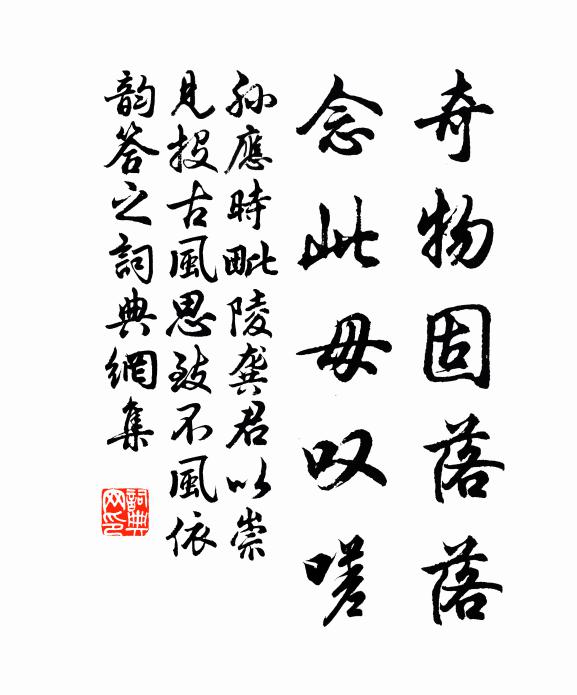 奇物固落落
念此毋叹嗟
孙應時毗陵龚君以崇
見投古風思致不風依
韵答之詞典網集
詞典网印